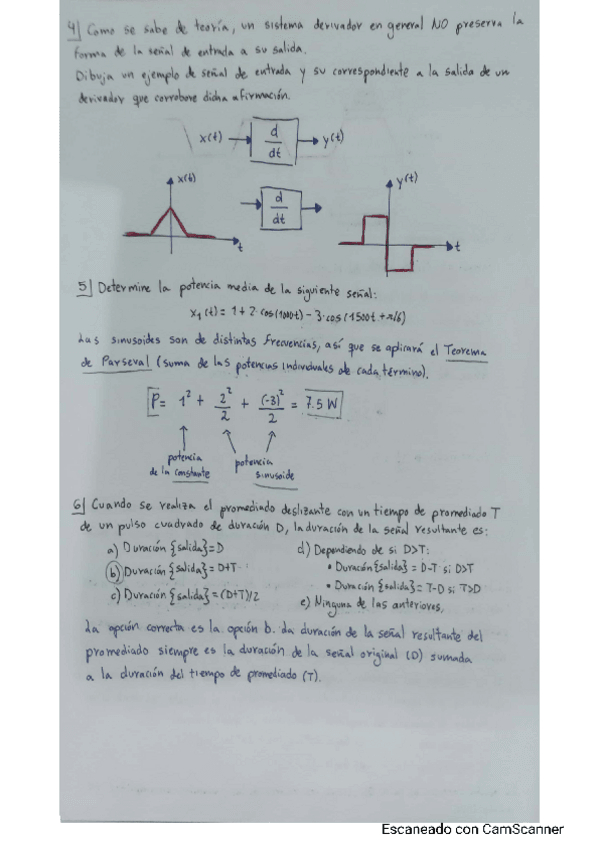 4| Como se sabe de teoría, un sistema derivador en general NO preserva la
forma de la señal de entrada a su salida.
Dibuja un ejemplo de señal de entrada y su correspondiente a la salida de un
derivador que corrobore dicha afirmación.
x(t) → d/dt → y(t)
x(t)
t
d/dt
y(t)
t
5| Determine la potencia media de la siguiente señal:
x₁(t) = 1 + 2·cos(1000t) - 3·cos(1500t + π/6)
Las sinusoides son de distintas frecuencias, así que se aplicará el Teorema
de Parseval (suma de las potencias individuales de cada término).
P = 1² + 2²/2 + (-3)²/2 = 7.5 W
potencia
de la constante
potencia
sinusoide
6| Cuando se realiza el promediado deslizante con un tiempo de promediado T
de un pulso cuadrado de duración D, la duración de la señal resultante es:
a) Duración {salida} = D
b) Duración {salida} = D+T
c) Duración {salida} = (D+T)/2
d) Dependiendo de si D>T:
• Duración {salida} = D-T si D>T
• Duración {salida} = T-D si T>D
e) Ninguna de las anteriores.
La opción correcta es la opción b. La duración de la señal resultante del
promediado siempre es la duración de la señal original (D) sumada
a la duración del tiempo de promediado (T).
Escaneado con CamScanner